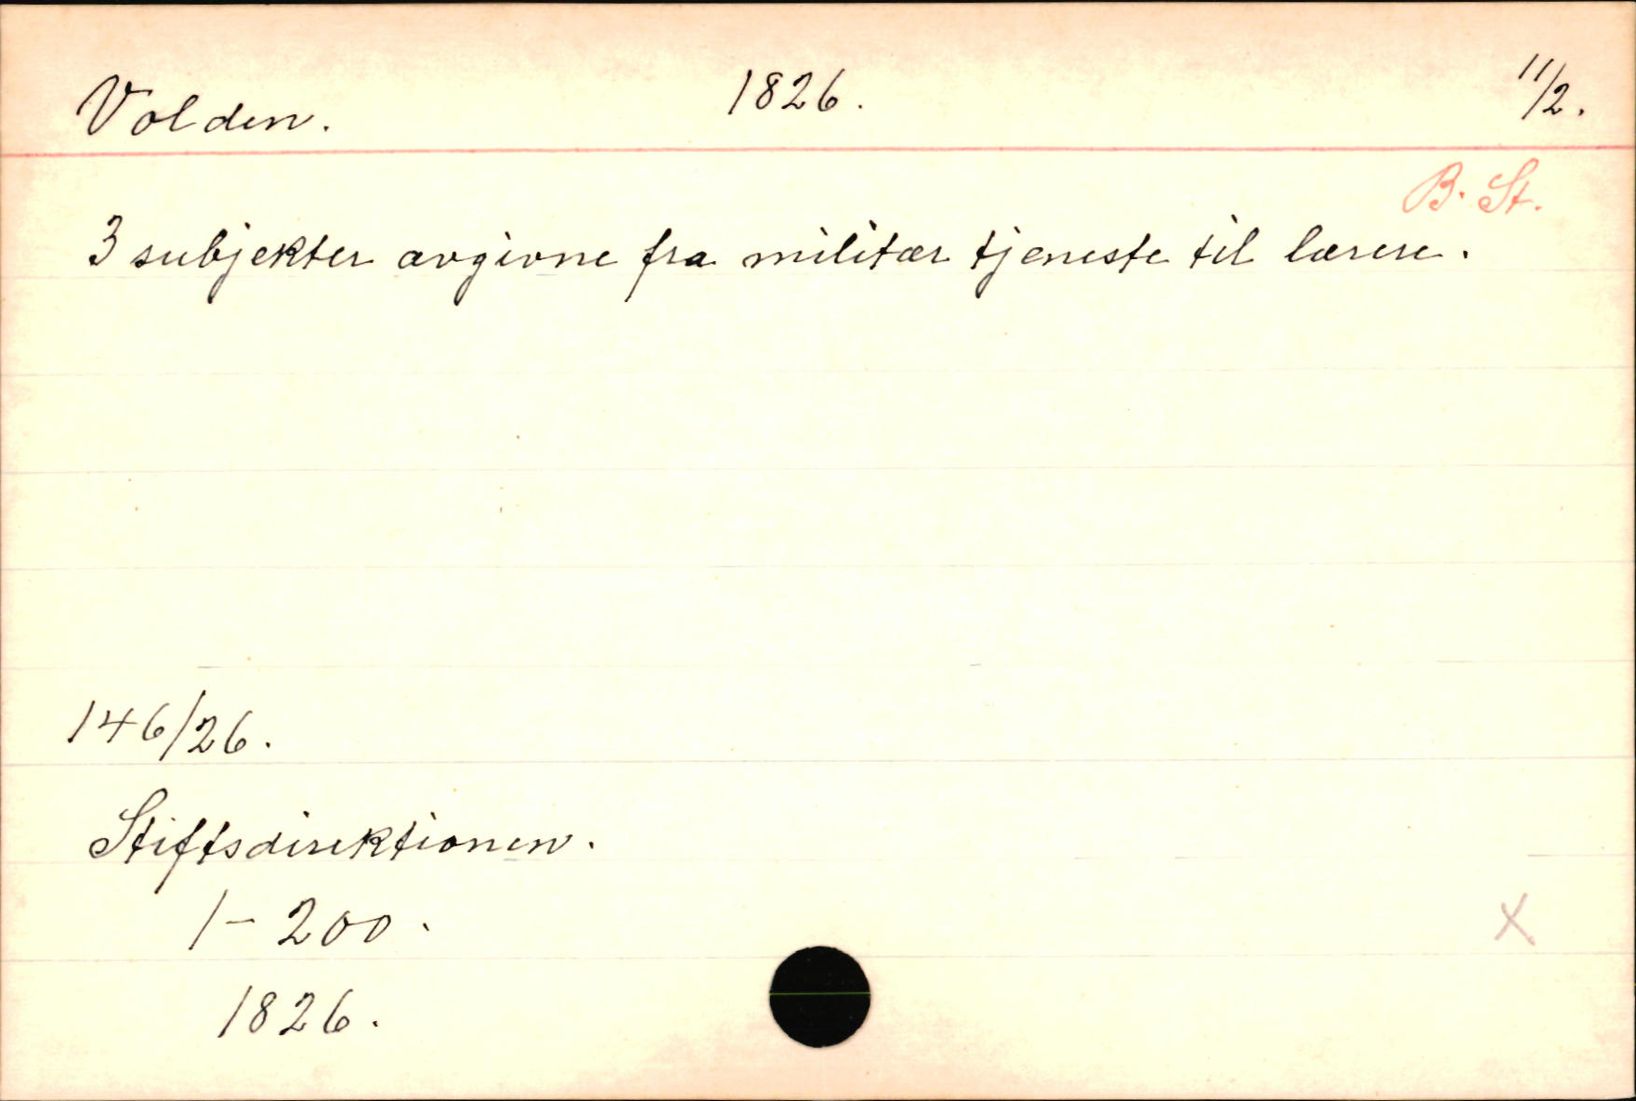 Volden. 1826. 11/2.
B. St.
3 subjekter avgivne fra militær tjeneste til lærere.
146/26.
Stiftsdirektionen.
1-200.
1826.
X